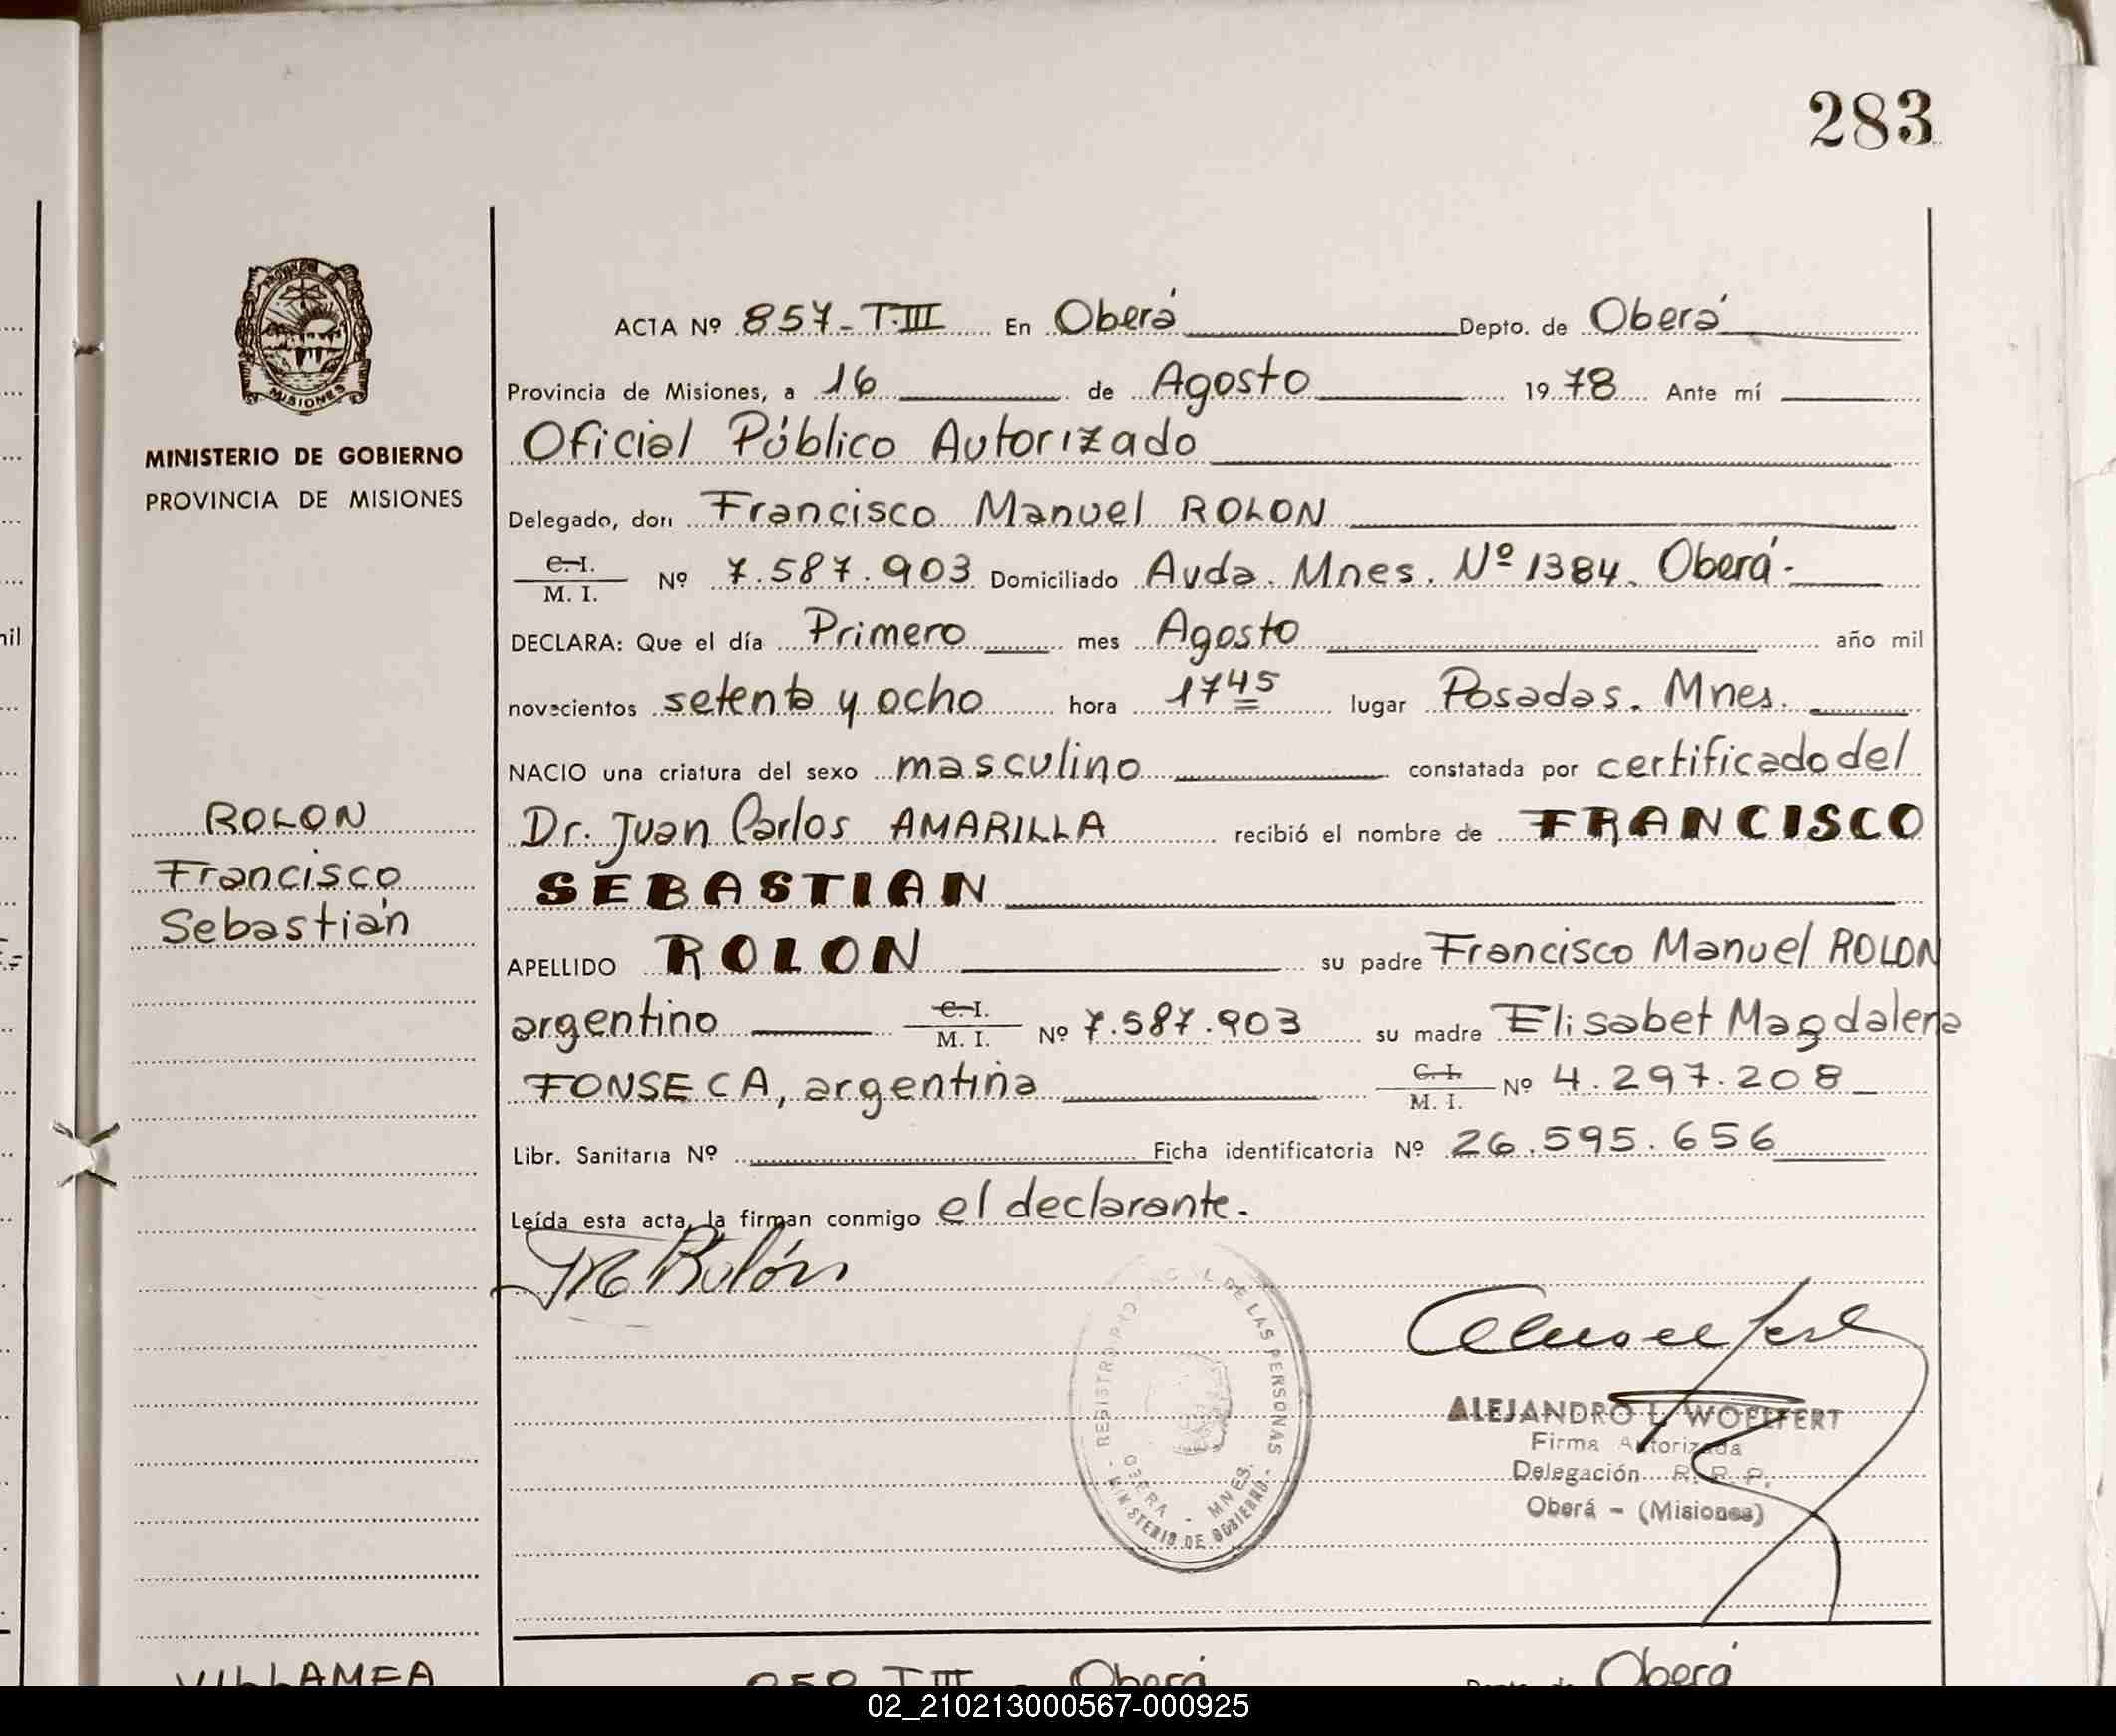 283
MISIONES
MINISTERIO DE GOBIERNO
PROVINCIA DE MISIONES
ROLON
Francisco
Sebastián
ACTA Nº 857-T.III En Oberá Depto. de Oberá
Provincia de Misiones, a 16 de Agosto 1978 Ante mí
Oficial Público Autorizado
Delegado, don Francisco Manuel ROLON
C.I. M. I. Nº 7.587.903 Domiciliado Avda. Mnes. Nº 1384. Oberá.
DECLARA: Que el día Primero mes Agosto año mil
novecientos setenta y ocho hora 17 45 lugar Posadas. Mnes.
NACIO una criatura del sexo masculino constatada por certificado del
Dr. Juan Carlos AMARILLA recibió el nombre de FRANCISCO
SEBASTIAN
APELLIDO ROLON su padre Francisco Manuel ROLON
argentino C.I. M. I. Nº 7.587.903 su madre Elisabet Magdalena
FONSECA, argentina C.I. M. I. Nº 4.297.208
Libr. Sanitaria Nº Ficha identificatoria Nº 26.595.656
Leída esta acta, la firman conmigo el declarante.
Rolón
REGISTRO DE LAS PERSONAS
OBERA - MNES.
- MINISTERIO DE GOBIERNO -
ALEJANDRO L. WOELFERT
Firma Autorizada
Delegación R. P. P.
Oberá - (Misiones)
Oberá Depto. de Oberá
02_210213000567-000925